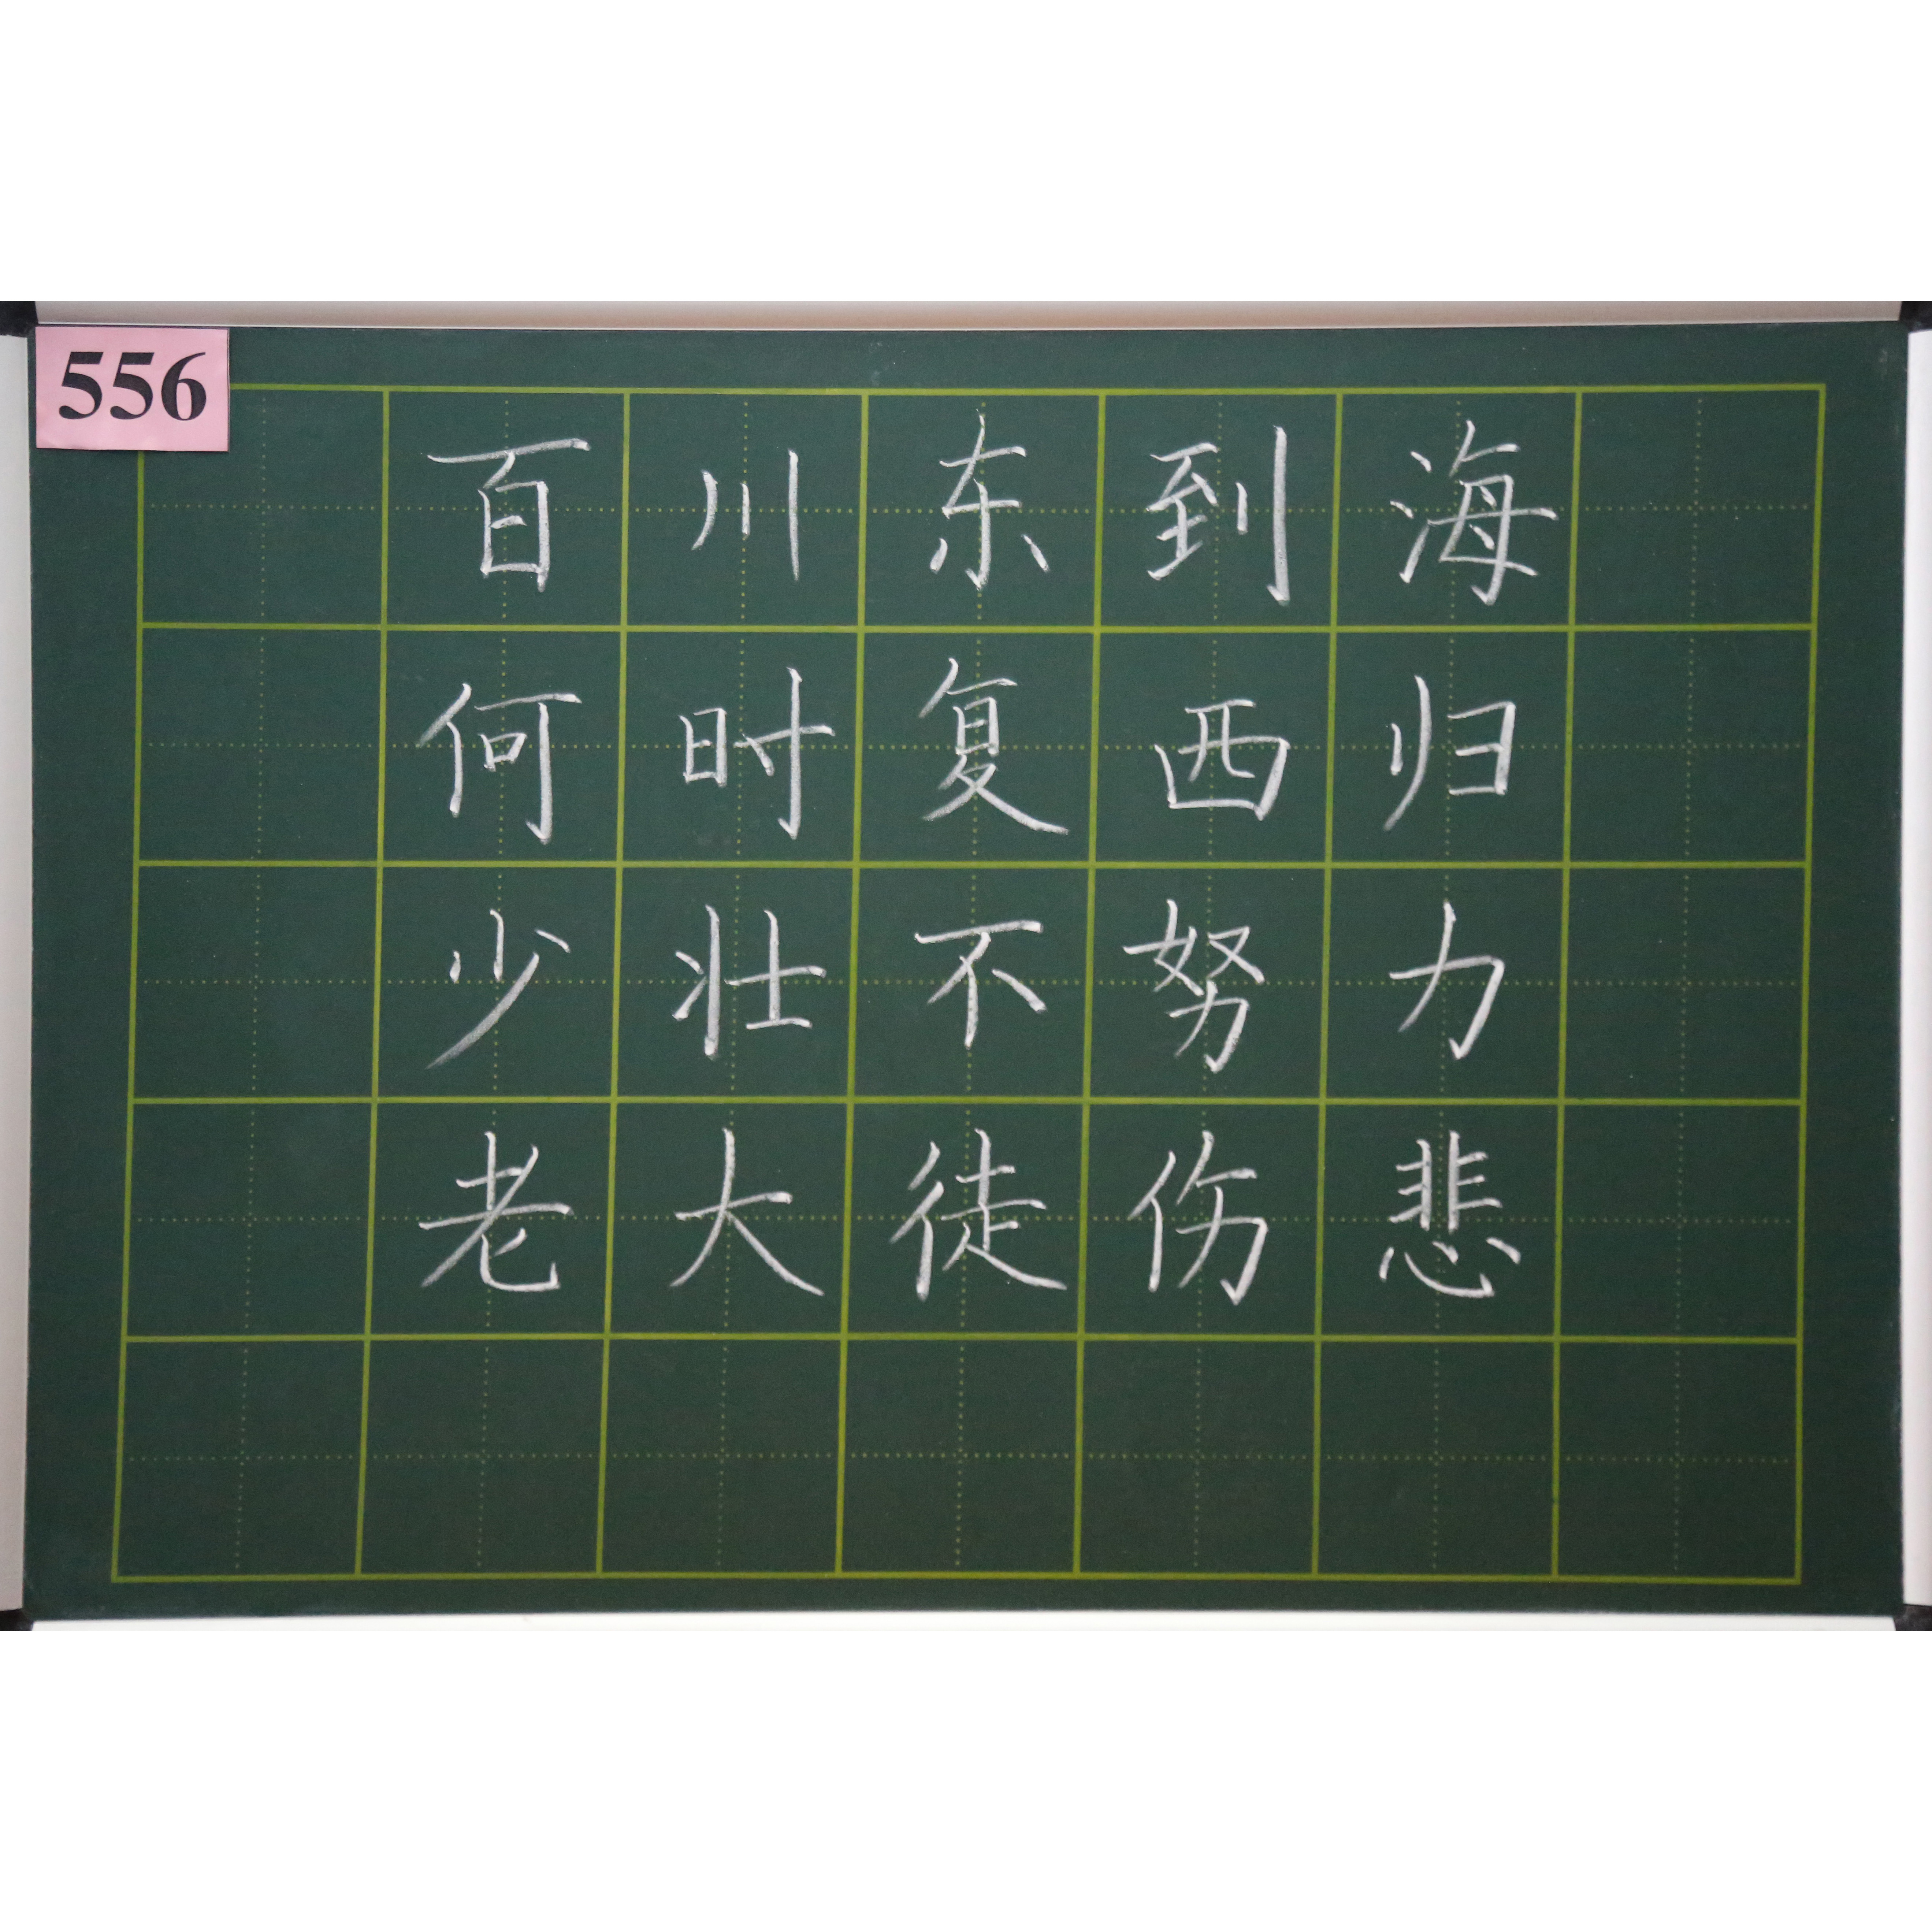 556
百川东到海
何时复西归
少壮不努力
老大徒伤悲